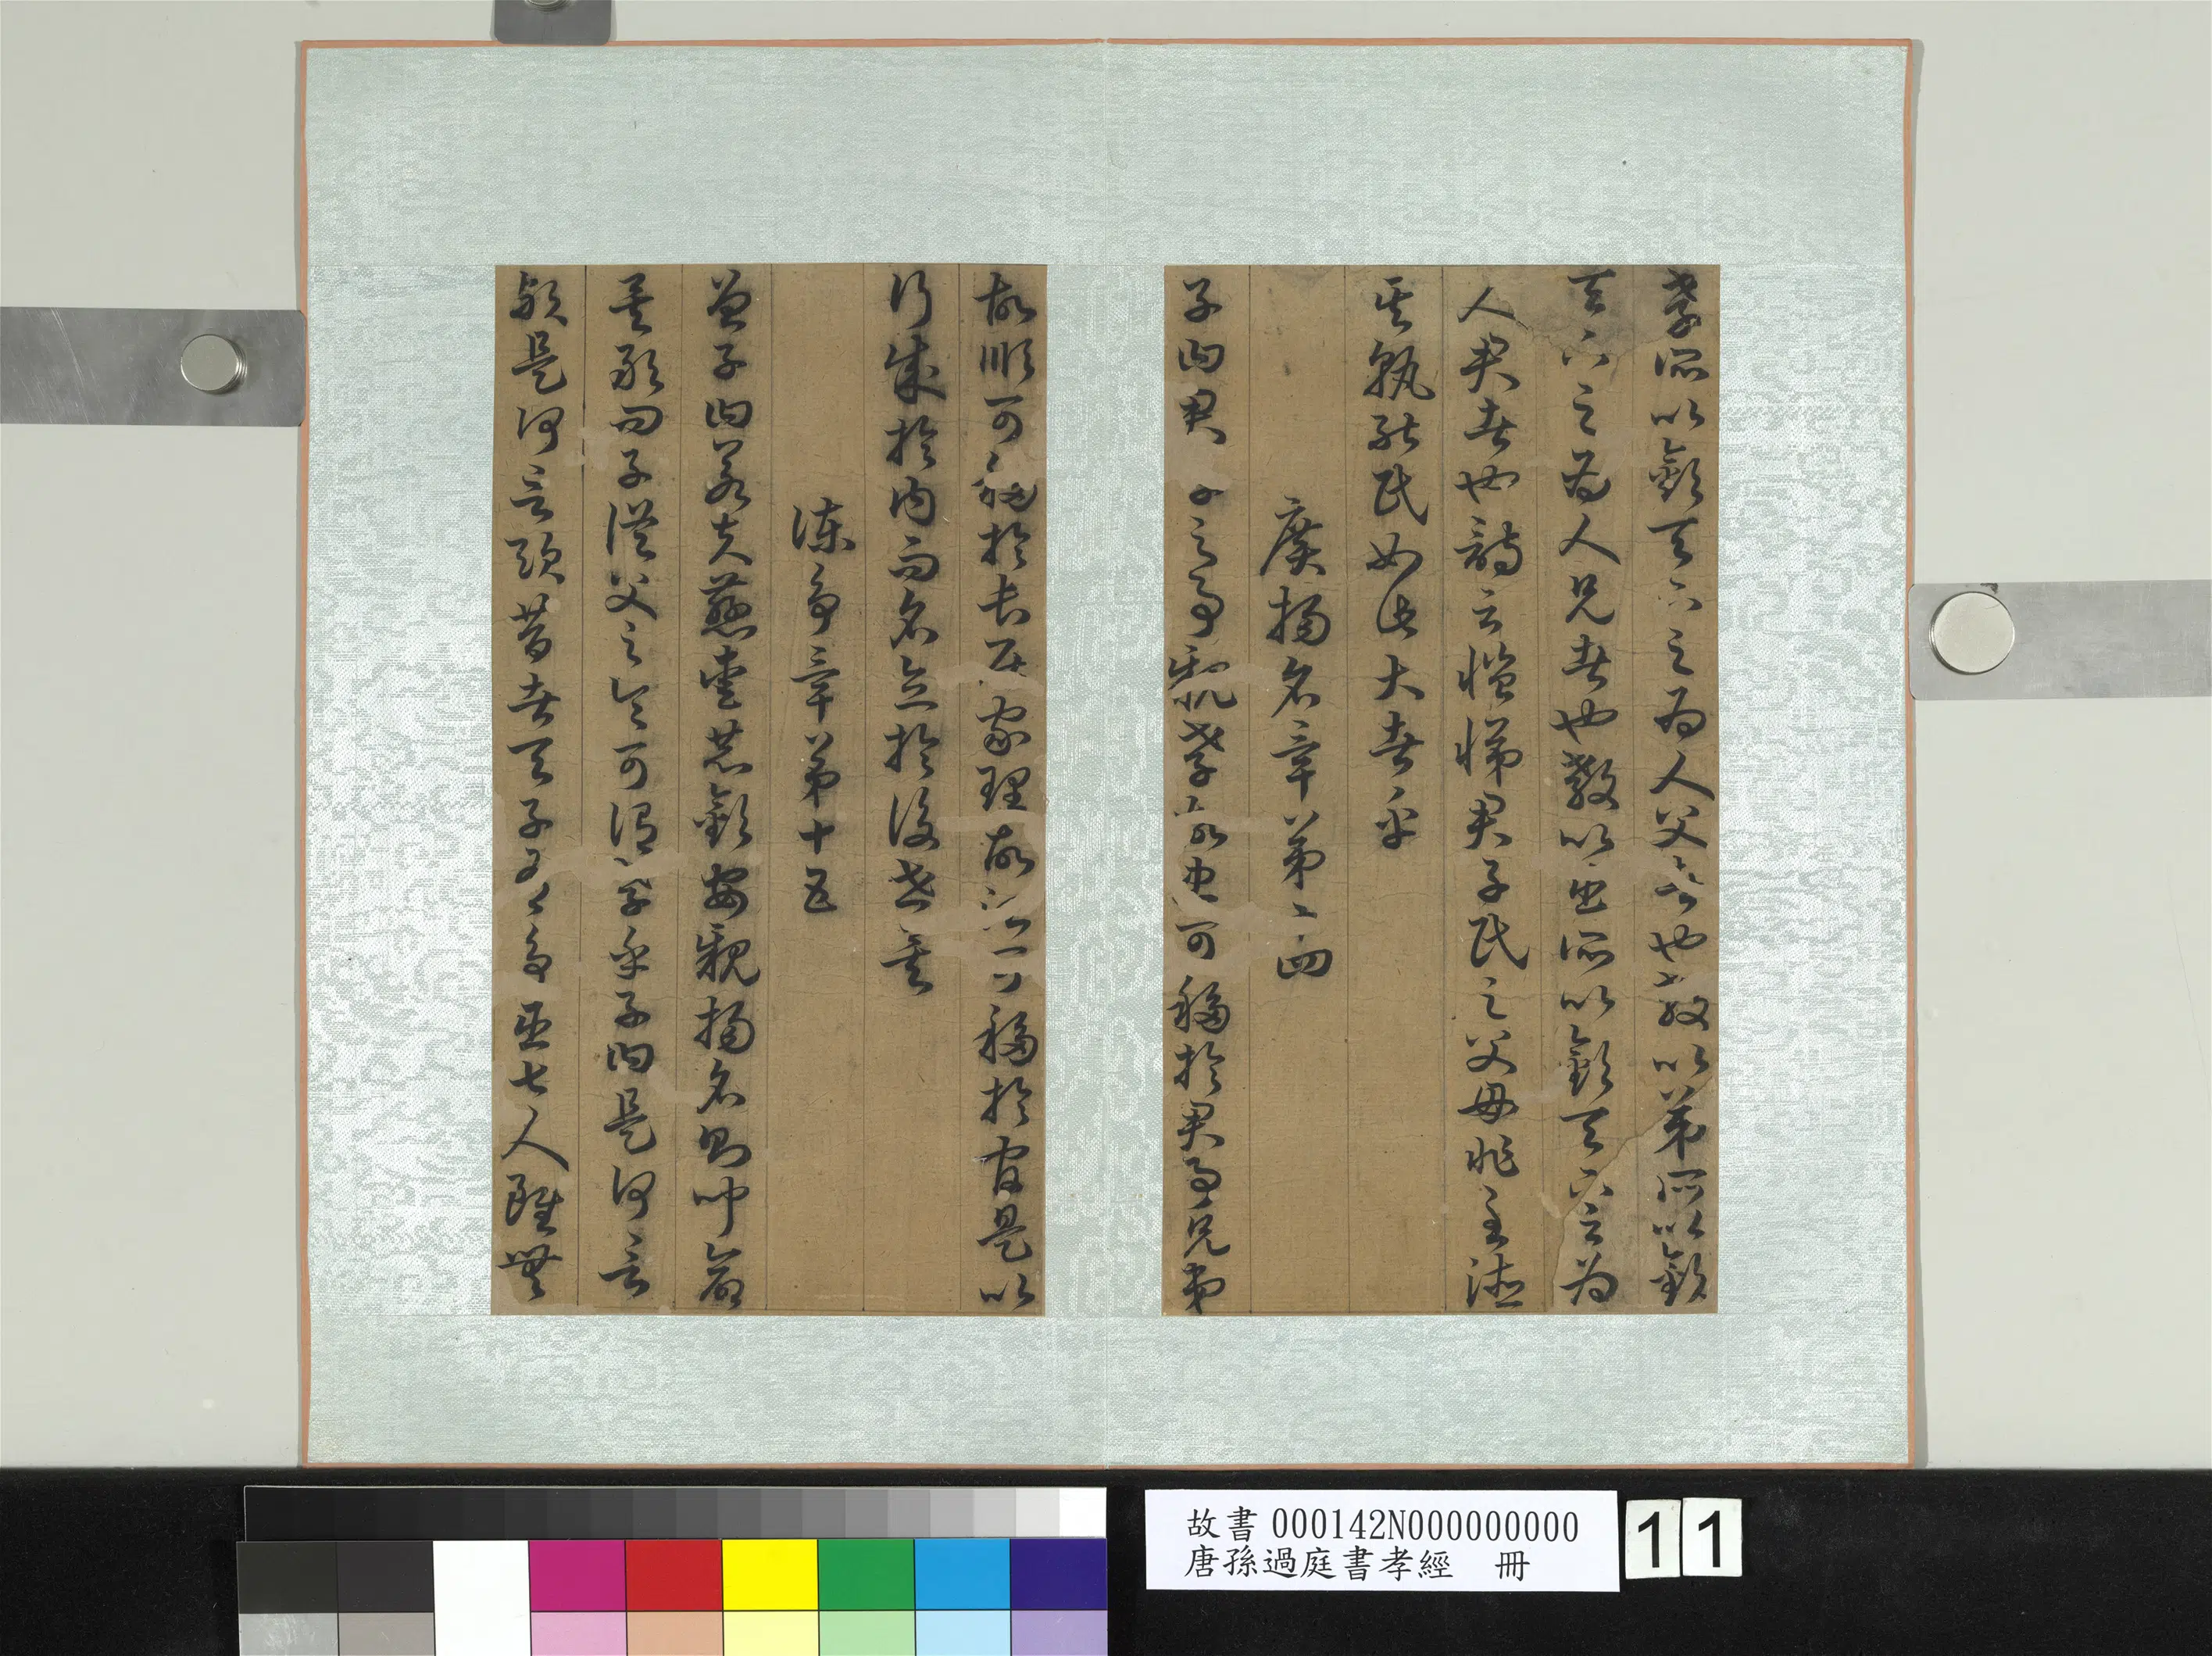 孝所以敬天下之為人父者也教以弟所以敬
天下之為人兄者也教以臣所以敬天下之為
人君者也詩云愷悌君子民之父母非至德
其孰能民如此大者乎
廣揚名章第十四
子曰君子之事親孝故忠可移於君事兄弟
故順可移於長居家理故治可移於官是以
行成於內而名立於後世矣
諫爭章第十五
曾子曰若夫慈愛恭敬安親揚名則聞命
矣敢問子從父之令可謂孝乎子曰是何言
歟是何言歟昔者天子有爭臣七人雖無
故書000142N000000000
唐孫過庭書孝經 冊
11